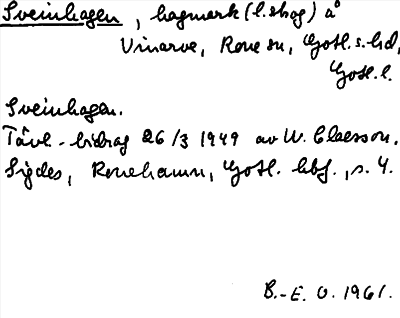 Sveinhagen, hagmark (l. skog) å
Vinarve, Rone sn, Gotl. s. hd,
Gotl. l.
Sveinhagen.
Tävl.-bidrag 26/3 1949 av W. Claesson,
Sigdes, Ronehamn, Gotl. hbf., s. 4.
B.-E. O. 1961.